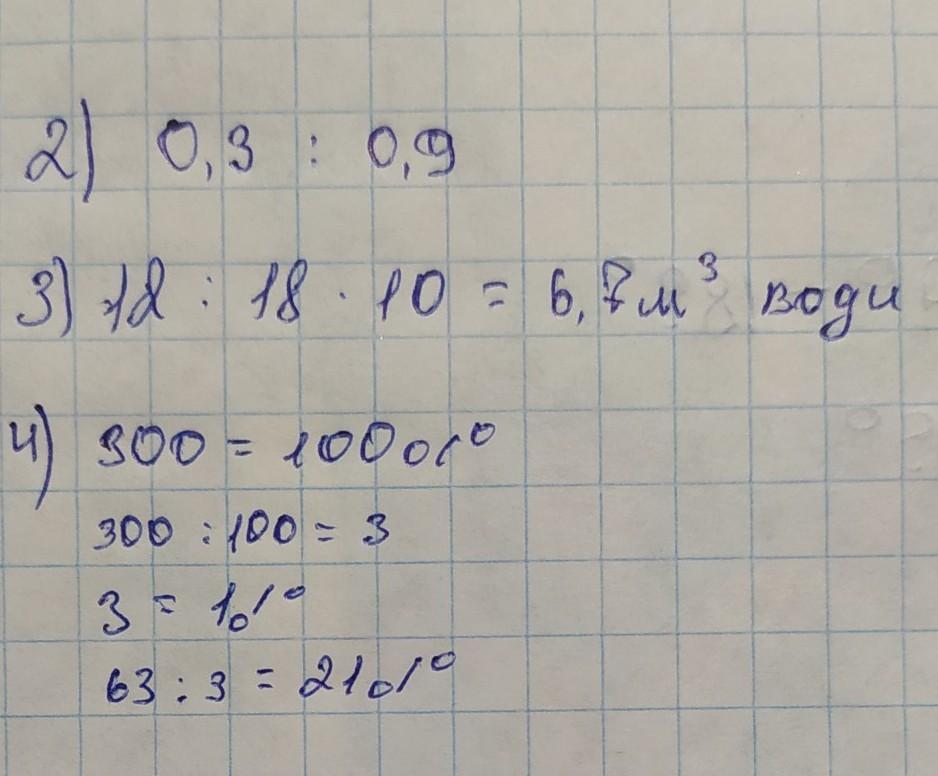 2) 0,3 : 0,9
3) 12 : 18 · 10 = 6,7 м³ води
4) 300 = 100%
300 : 100 = 3
3 = 1%
63 : 3 = 21%